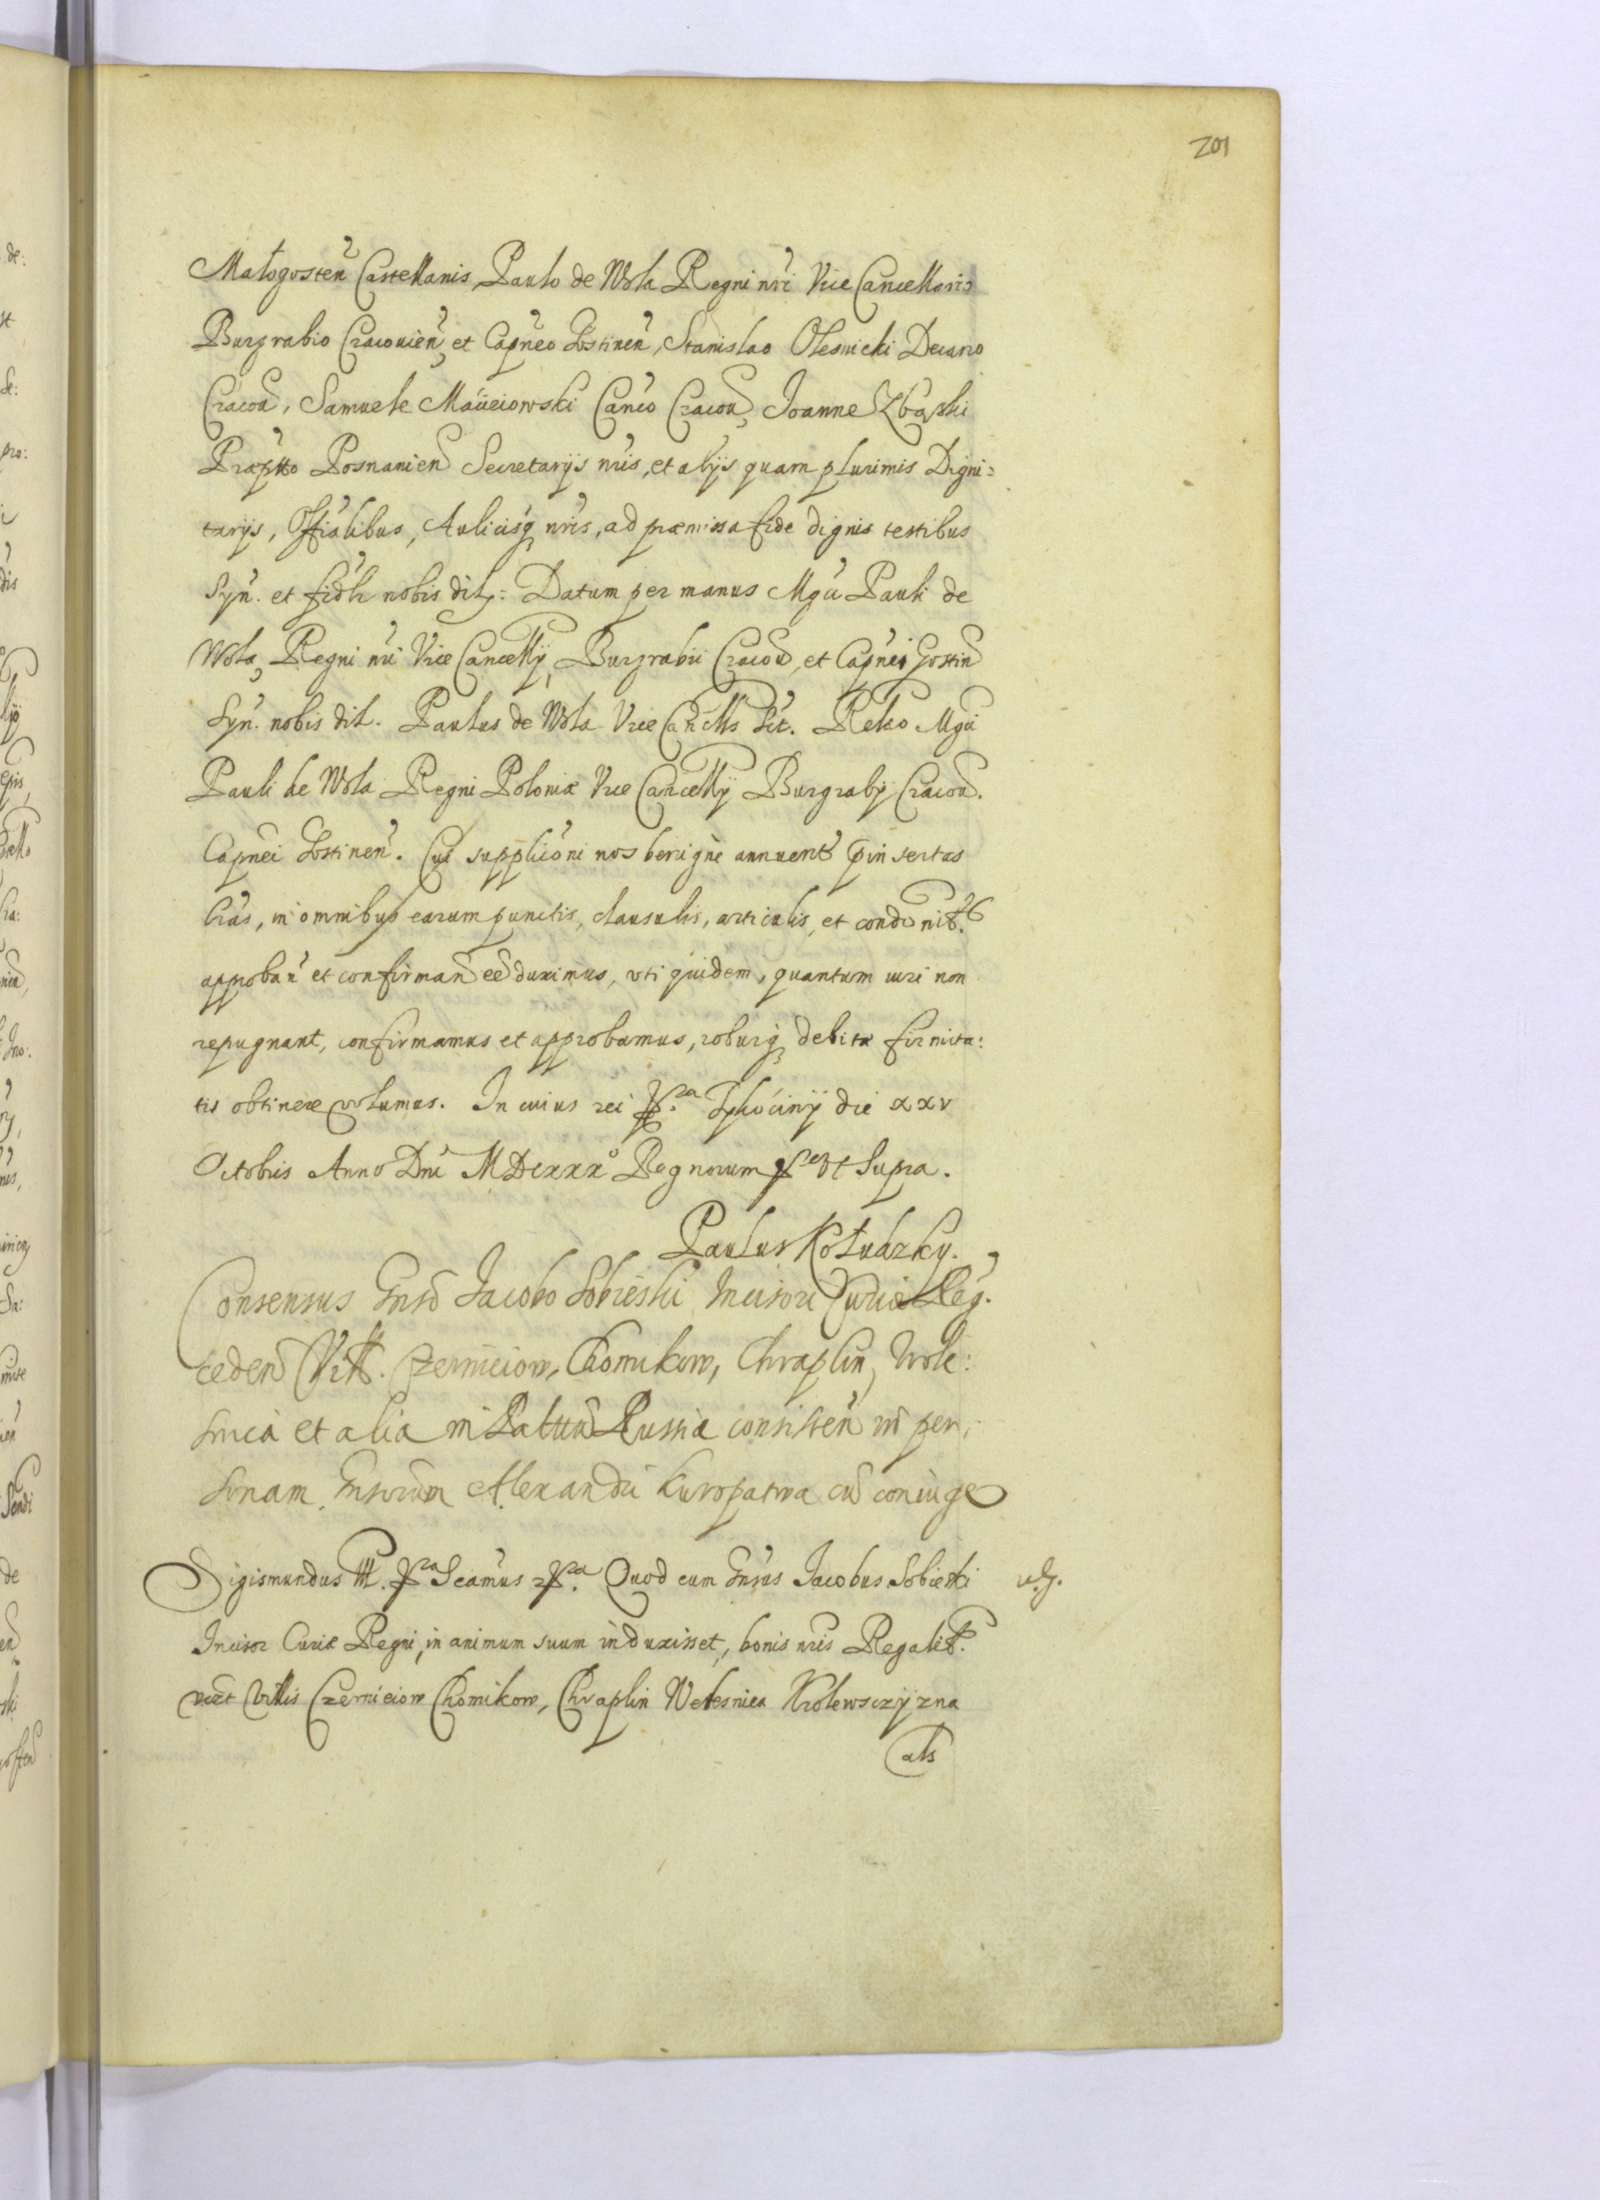 201
Małogosteñ Castellanis Paulo de Wola Regni nri Vice Cancellario
Burgrabio Cracouień et Capneo Gostineń, Stanislao Olesnicki Decano
Cracou, Samuele Macieiowski Canco Cracou, Joanne Zbąski
Præptto Posnanien Secretarijs nris, et alijs quam plurimis Digni=
tarijs, Offialibus, Aulicisq nris, ad præmissa fide dignis testibus
Syn. et fidlr nobis dil: Datum per manus Mgci Pauli de
Wola Regni nri Vice Cancellij, Burgrabii Cracou, et Capnei Gostin
Syn. nobis dil. Paulus de Wola Vice Canclls sst. Relao Mgci
Pauli de Wola Regni Poloniæ Vice Cancellij Burgrabij Cracou.
Capnei Gostineń. Cui supplicõni nos benignè annuent pinsertas
lras, in omnibus earum punctis, clausulis, articulis, et condonibs
approbañ et confirmañ eẽ duximus, vti quidem, quantum iuri non
repugnant, confirmamus et approbamus, roburq debitæ firmita:
tis obtinere volumus. In cuius rei Tykocinij die XXV
Octobris Anno Dni MDCXXX Regnorum vt Supra.
Paulus Kołudzky.
Consensus Gnso Jacobo Sobieski Incisori Curiæ Reg.
cedend Vill. Czerniciow, Chomikow, Chraplin, Wole:
snica et alia in Palttu Russiæ consisteñ in per:
sonam Gnsorum Alexandri Kuropatwa cũ coniuge
Sigismundus III. Scamus Quod cum Gnsus Jacobus Sobieski
Incisor Curiæ Regni, in animum suum induxisset, bonis nris Regalib.
vizt Villis Czerniciow Chomikow, Chraplin Wolesnica Krolewsczijzna
als